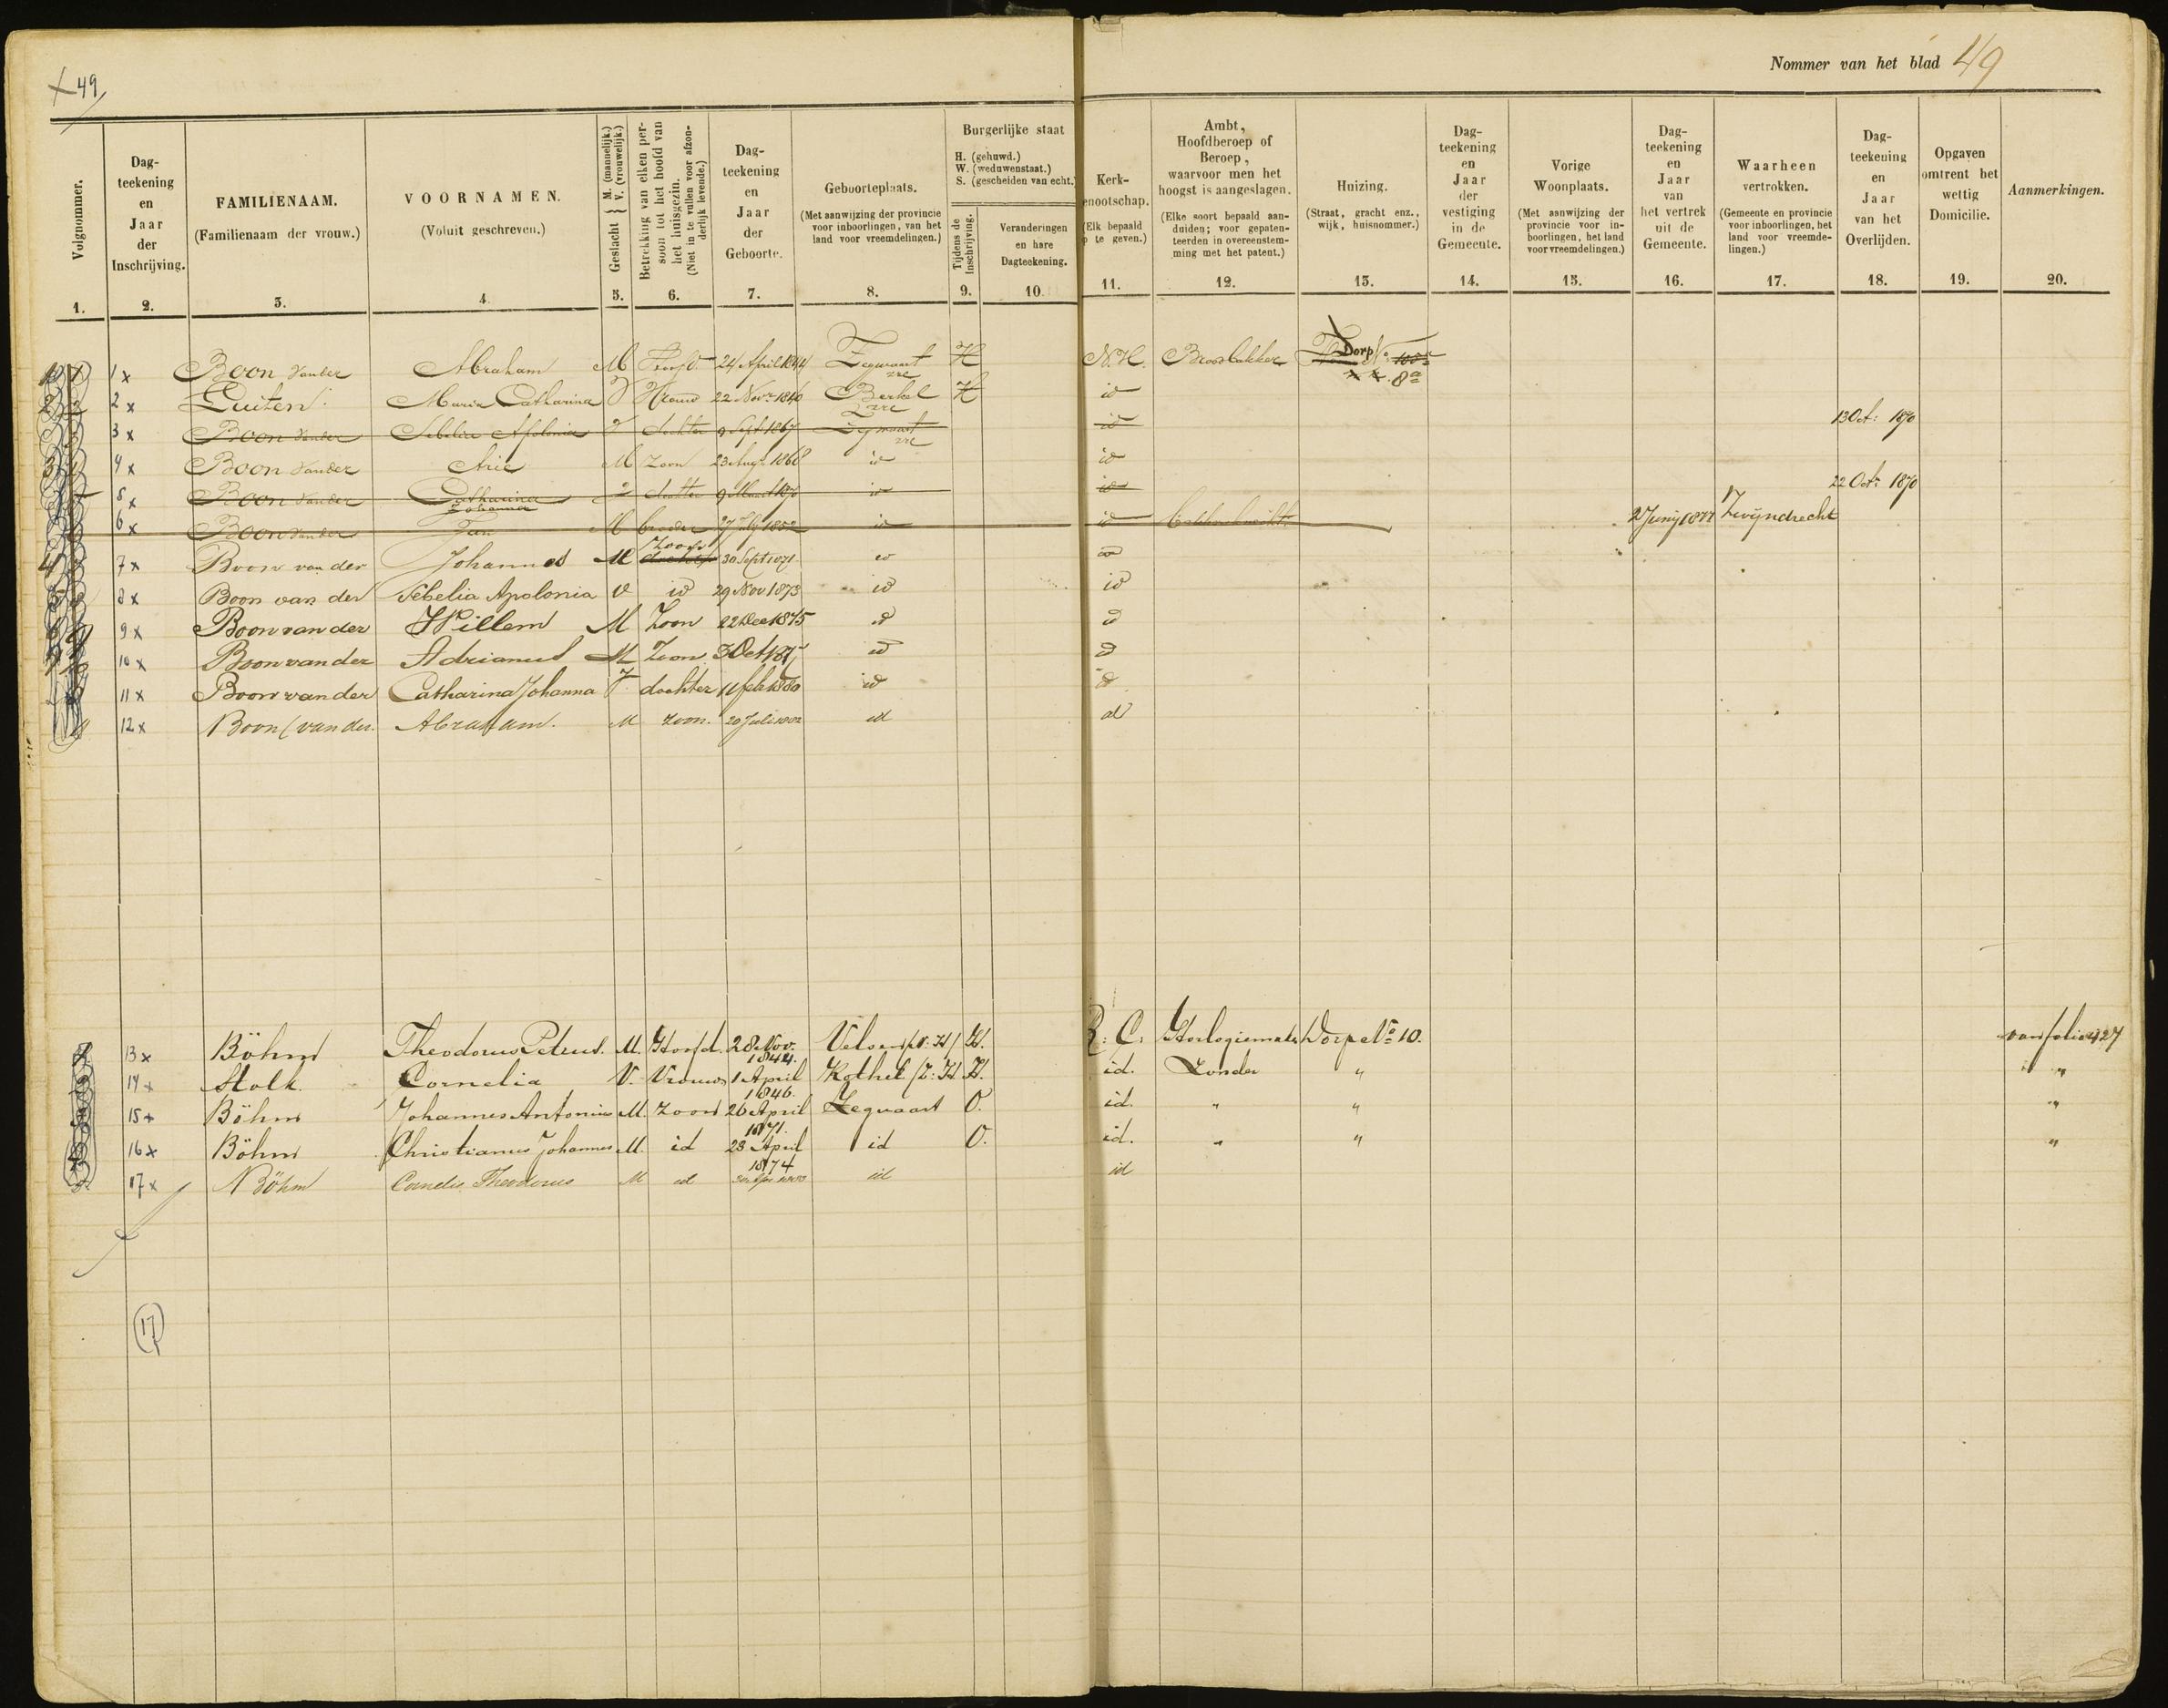 49
Nommer van het blad 49
Volgnommer.
1.
Dag-
teekening
en
Jaar
der
Inschrijving.
2.
FAMILIENAAM.
(Familienaam der vrouw.)
3.
VOORNAMEN.
(Voluit geschreven.)
4.
Geslacht { M. (mannelijk.) V. (vrouwelijk.)
5.
Betrekking van elken per-
soon tot het hoofd van
het huisgezin.
(Niet in te vullen voor afzon-
derlijk levende.)
6.
Dag-
teekening
en
Jaar
der
Geboorte.
7.
Geboorteplaats.
(Met aanwijzing der provincie
voor inboorlingen, van het
land voor vreemdelingen.)
8.
Burgerlijke staat
H. (gehuwd.)
W. (weduwenstaat.)
S. (gescheiden van echt.)
Tijdens de
Inschrijving.
9.
Veranderingen
en hare
Dagteekening.
10.
Kerk-
enootschap.
(Elk bepaald
p te geven.)
11.
Ambt,
Hoofdberoep of
Beroep,
waarvoor men het
hoogst is aangeslagen.
(Elke soort bepaald aan-
duiden; voor gepaten-
teerden in overeenstem-
ming met het patent.)
12.
Huizing.
(Straat, gracht enz.,
wijk, huisnommer.)
13.
Dag-
teekening
en
Jaar
der
vestiging
in de
Gemeente.
14.
Vorige
Woonplaats.
(Met aanwijzing der
provincie voor in-
boorlingen, het land
voor vreemdelingen.)
15.
Dag-
teekening
en
Jaar
van
het vertrek
uit de
Gemeente.
16.
Waarheen
vertrokken.
(Gemeente en provincie
voor inboorlingen, het
land voor vreemde-
lingen.)
17.
Dag-
teekening
en
Jaar
van het
Overlijden.
18.
Opgaven
omtrent het
wettig
Domicilie.
19.
Aanmerkingen.
20.
1 x Boon van der Abraham M Hoofd 24 April 1844 Zegwaart H N.H. Broodbakker Dorp No 8a
2 x Luiten Maria Catharina V Vrouw 22 Novr 1846 Berkel H id
3 x Boon van der Sebelia Apolonia V dochter 9 Sept 1867 Zegwaart id 13 Oct: 1870
4 x Boon van der Arie M Zoon 23 Aug 1868 id id
5 x Boon van der Catharina Johanna V dochter 9 Maart 1870 id id 22 Oct: 1870
6 x Boon van der Jan M broeder 27 July 1852 id id 2 Junij 1877 Zwijndrecht
7 x Boon van der Johannes M Zoon 30 Sept 1871 id id
8 x Boon van der Sebelia Apolonia V id 29 Nov 1873 id id
9 x Boon van der Willem M Zoon 22 Dec 1875 id id
10 x Boon van der Adrianus M Zoon 3 Oct 1877 id id
11 x Boon van der Catharina Johanna V dochter 11 feb 1880 id id
12 x Boon (van der. Abraham. M zoon. 20 Juli 1882 id id
13 x Böhm Theodorus Petrus. M. Hoofd. 28 Nov. 1844. Velsen (N: H) H. R: C. Horlogiemaker Dorp No 10. van folio 427
14 x Stolk Cornelia V. Vrouw 1 April 1846. Kethel (Z: H H. id. Zonder " "
15 x Böhm Johannes Antonius M. Zoon 26 April 1871. Zegwaart O. id. " " "
16 x Böhm Christianus Johannes M. id 28 April 1874 id O. id. " " "
17 x Böhm Cornelis Theodorus M id id id
17